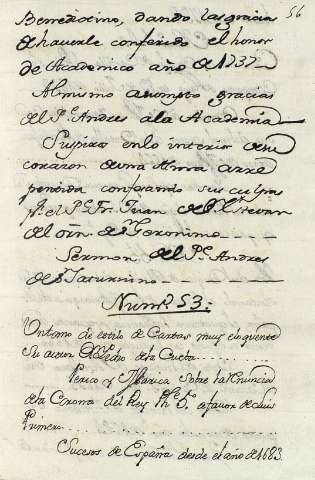 56
Benedictino, dando las gracias
de haverle conferido el honor
de Academico año de 1737
Al mismo asumpto gracias
del Pe. Andres a la Academia
Suspiros en lo interior de su
corazon de una Alma arre
pentida confesando sus culpas
pr. el Pe. Fr. Juan de Sn. Estevan
del orn. de Sn. Geronimo
Sermon del Pe. Andres
de Saturnino
Numo. 53:
Un tomo de estilo de Cartas muy eloquente
Su autor Dn. Pedro de la Cueba
Perico y Marica Sobre la renuncia
de la Corona del Rey Phe. 5o. a favor de Luis
Primero
Sucesos de España desde el año de 1683.